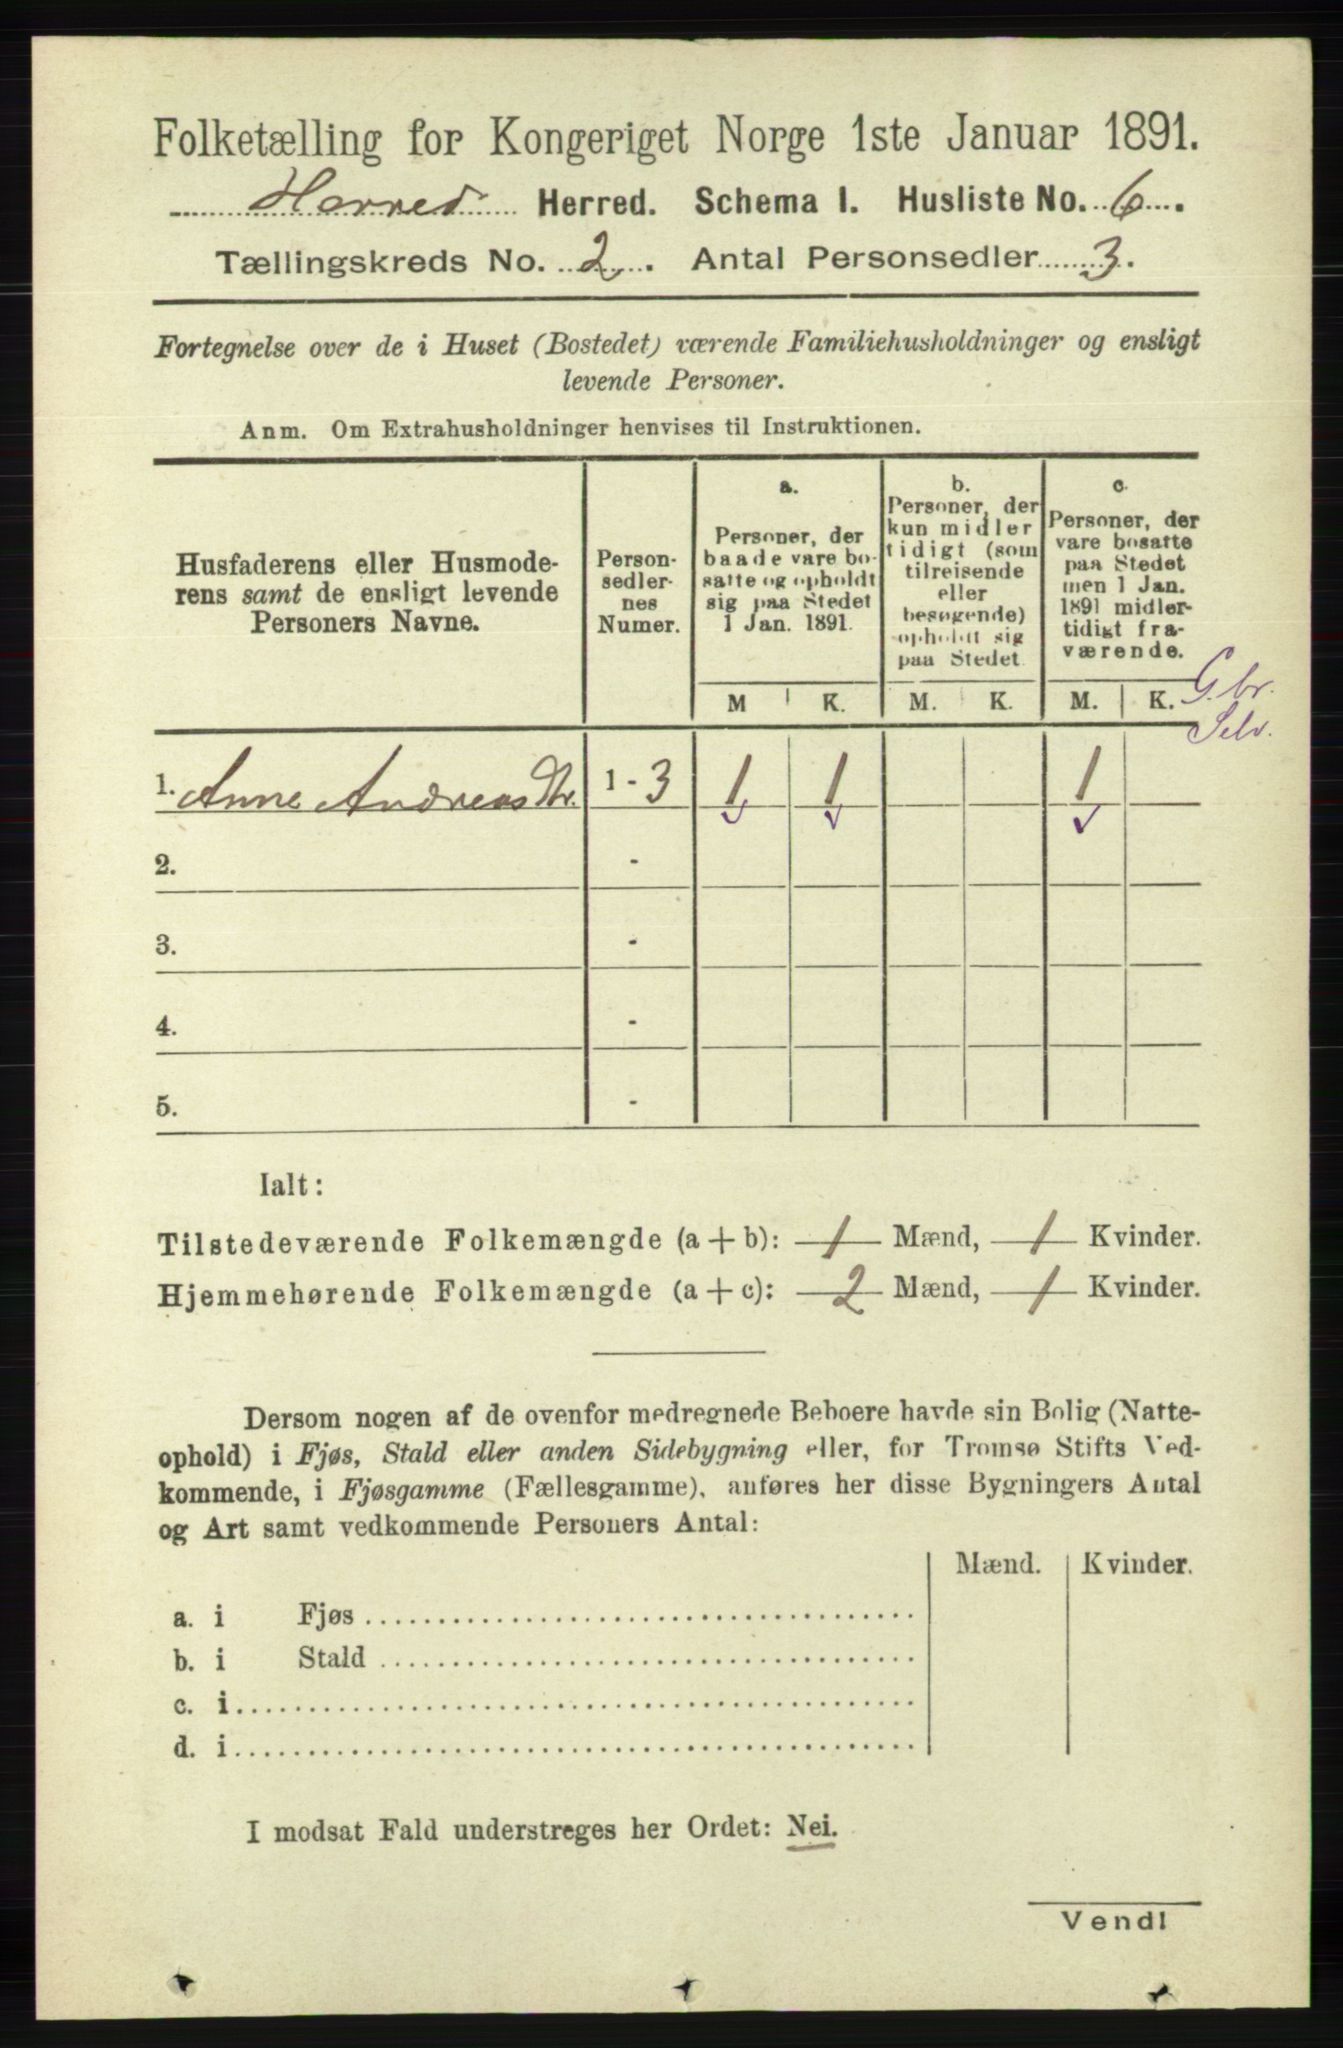 Folketælling for Kongeriget Norge 1ste Januar 1891.
Herred Herred. Schema I. Husliste No. 6.
Tællingskreds No. 2. Antal Personsedler 3.
Fortegnelse over de i Huset (Bostedet) værende Familiehusholdninger og ensligt
levende Personer.
Anm. Om Extrahusholdninger henvises til Instruktionen.
Husfaderens eller Husmode-
rens samt de ensligt levende
Personers Navne.
Person-
sedler-
nes
Numer.
a.
Personer, der
baade vare bo-
satte og opholdt
sig paa Stedet
1 Jan. 1891.
b.
Personer, der
kun midler
tidigt (som
tilreisende
eller
besøgende)
opholdt sig
paa Stedet.
c.
Personer, der
vare bosatte
paa Stedet
men 1 Jan.
1891 midler-
tidigt fra-
værende.
M K. M. K. M. K.
G.br.
Selv.
1. Anne Andreas Dtr. 1 - 3 1 1 1
2. -
3. -
4. -
5. -
Ialt:
Tilstedeværende Folkemængde (a + b): 1 Mænd, 1 Kvinder.
Hjemmehørende Folkemængde (a + c): 2 Mænd, 1 Kvinder.
Dersom nogen af de ovenfor medregnede Beboere havde sin Bolig (Natte-
ophold) i Fjøs, Stald eller anden Sidebygning eller, for Tromsø Stifts Ved-
kommende, i Fjøsgamme (Fællesgamme), anføres her disse Bygningers Antal
og Art samt vedkommende Personers Antal:
Mænd. Kvinder.
a. i Fjøs
b. i Stald
c. i
d. i
I modsat Fald understreges her Ordet: Nei.
Vend!